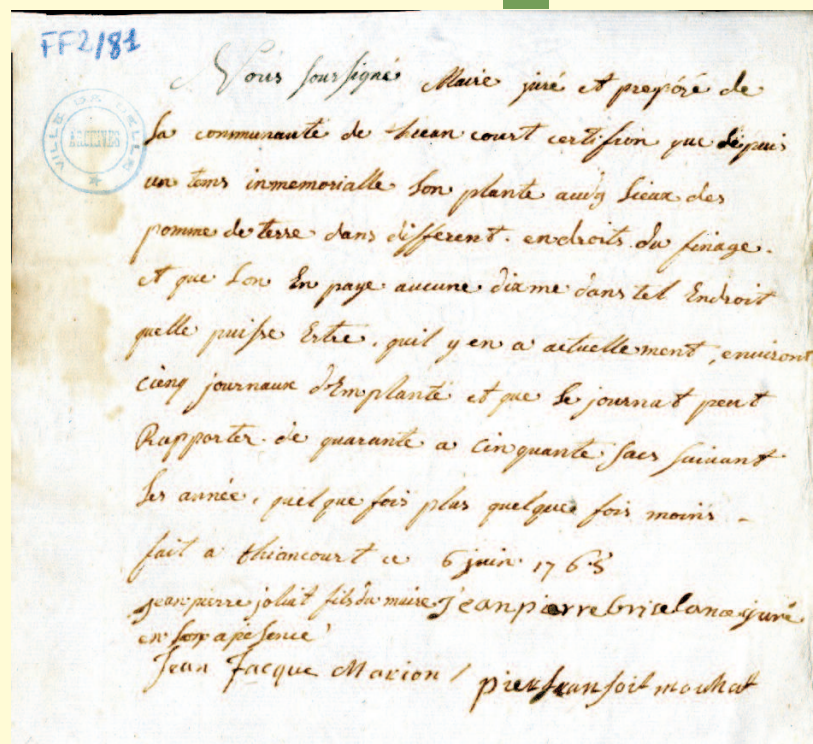 FF2/81
VILLE DE DELLE
ARCHIVES
Nous soussigné Maire juré et preposé de
La communauté de thieancourt certifion que depuis
un tems inmemorialle Lon plante audq Lieux des
pomme de terre dans different. endroits du finage.
et que Lon En paye aucune dixme dans tel Endroit
quelle puisse Estre, quil y en a actuellement, environt
cienq journaux d'Emplanté et que Le journat peut
Rapporter de quarante a Cinquante sacs suivant
Les année, quelque fois plus quelque fois moins -
fait a thiancourt ce 6 juin 1765
jean pierre joliat fils du maire Jean pierre briselance juré
en son apsence
Jean Jacque Marion / pier fransoit mouhat